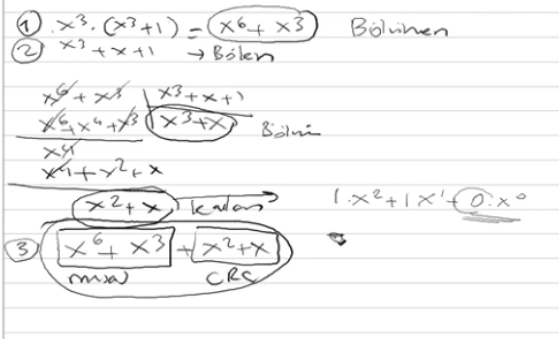 ① x³·(x³+1) = x⁶+x³ Bölünen
② x³+x+1 → Bölen
x⁶+x³ | x³+x+1
x⁶+x⁴+x³ x³+x Bölüm
x⁴
x⁴+x²+x
x²+x kalan 1·x²+1x¹+0·x⁰
③ x⁶+x³ + x²+x
mesaj CRC